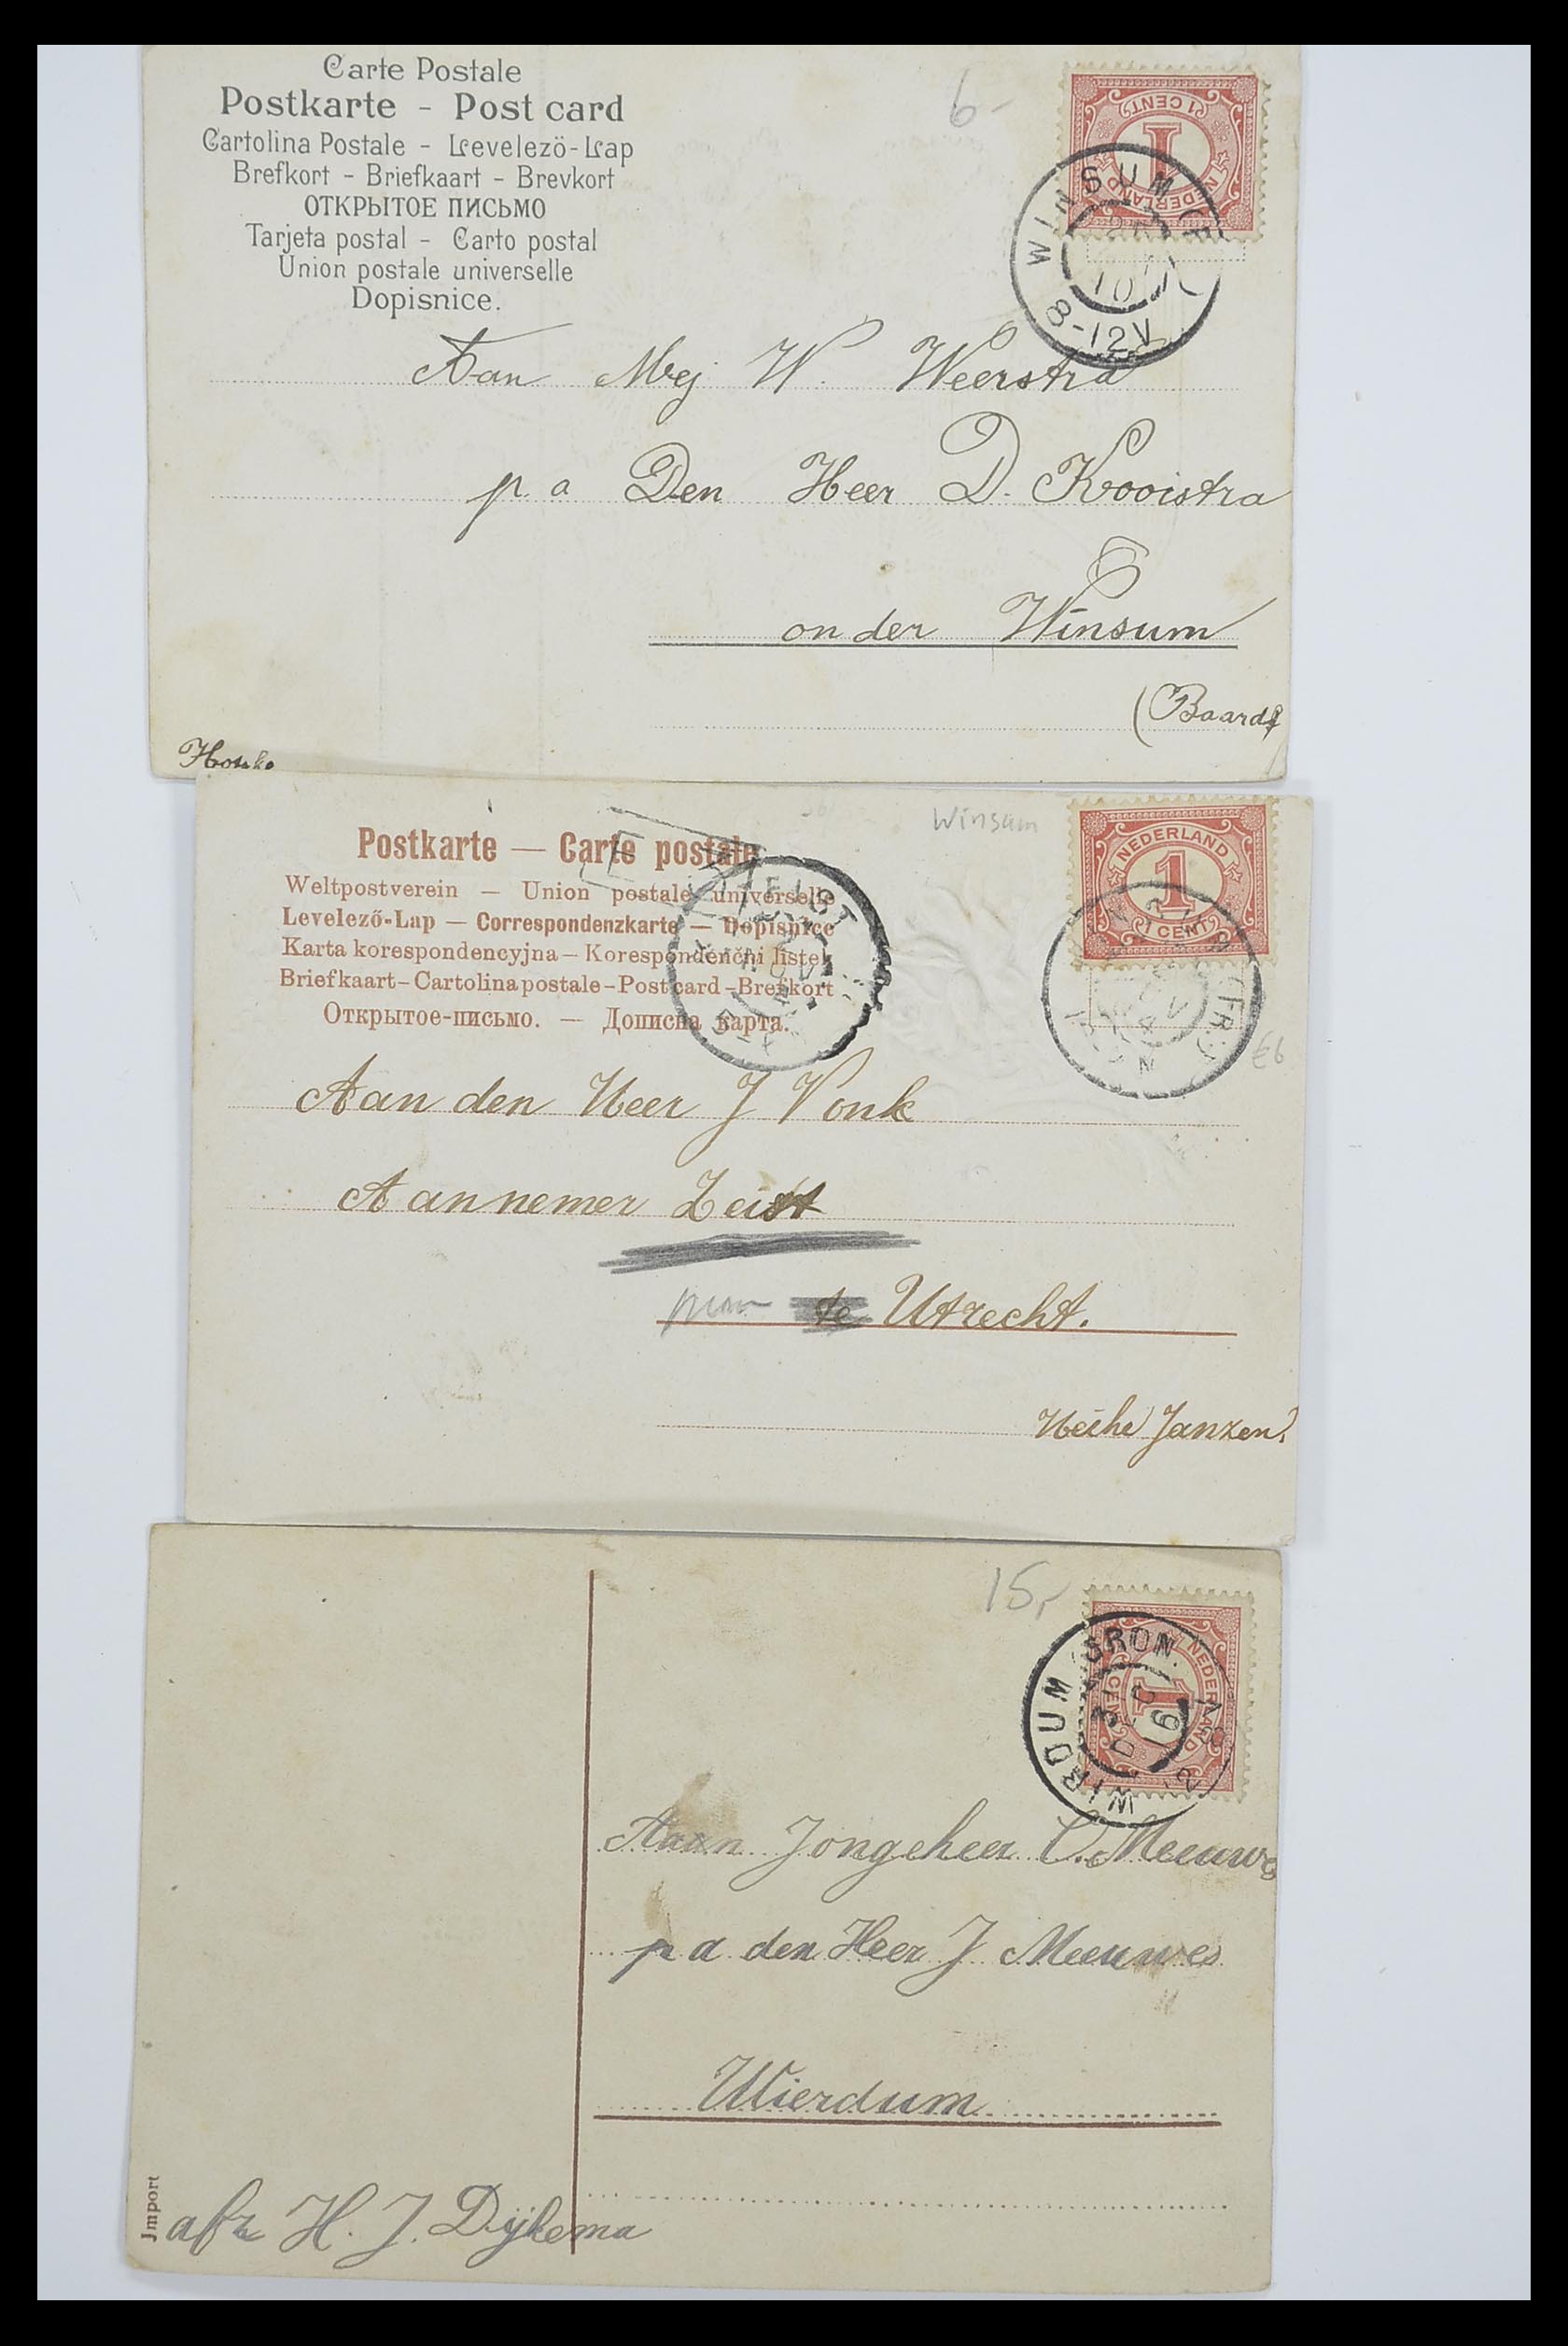 Carte Postale
Postkarte - Post card
Cartolina Postale - Levelezö-Lap
Brefkort - Briefkaart - Brevkort
ОТКРЫТОЕ ПИСЬМО
Tarjeta postal - Carto postal
Union postale universelle
Dopisnice.
6-
1 CENT
1
NEDERLAND
WINSUM (FR
10
8-12V
Aan Mej. W. Weerstra
p a Den Heer D. Kooistra
onder Winsum
(Baard)
Postkarte — Carte postale
Weltpostverein — Union postale universelle
Levelező-Lap — Correspondenzkarte — Dopisnice
Karta korespondencyjna – Korespondenčni listek
Briefkaart – Cartolina postale – Post card – Brefkort
Открытое-письмо. — Дописна карта.
Winsum
NEDERLAND
1
1 CENT
ZEIST
€6
Aan den Heer J Vonk
Aannemer Zeist
te Utrecht.
Janzen.
15,-
NEDERLAND
1
1 CENT
WIRDUM GRON.
31 DEC
16
Aan Jongeheer C. Meeuwes
p a den Heer J Meeuwes
Wierdum
Import
afz H. J. Dijkema